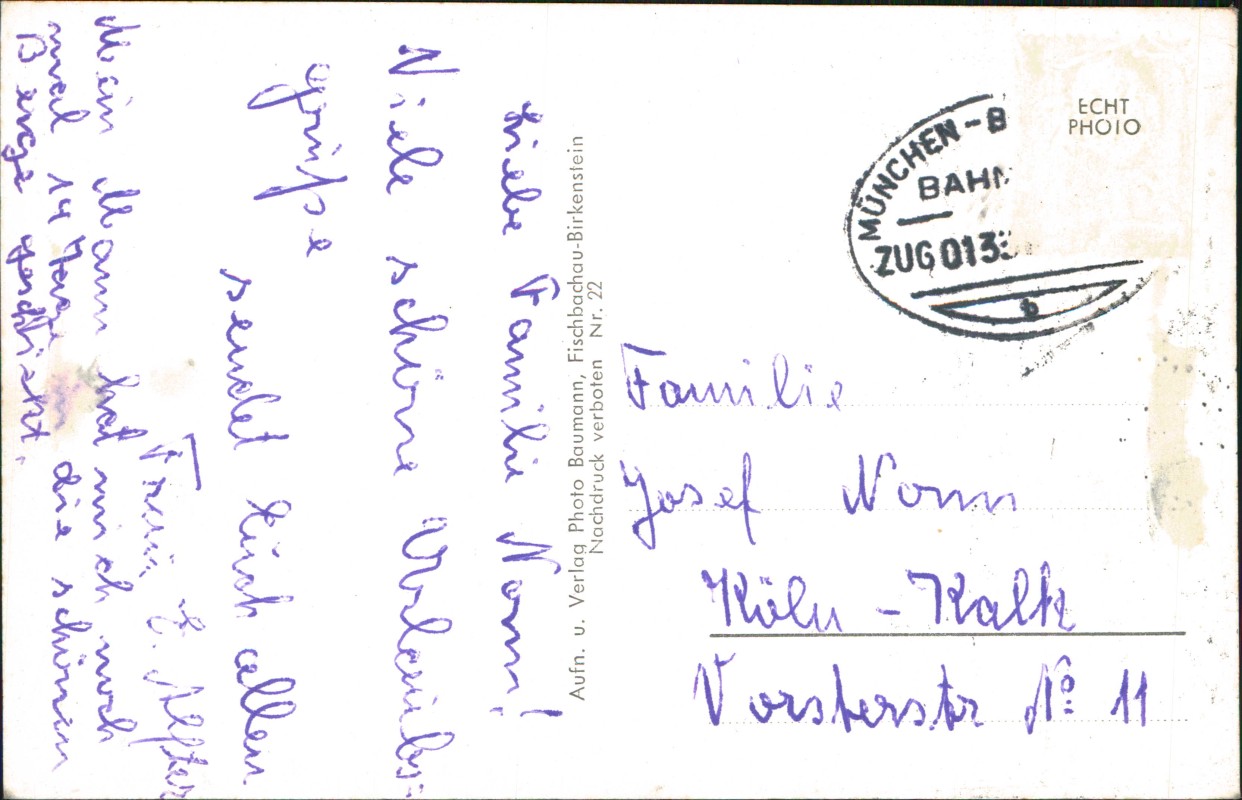 Liebe Familie Nonn!
Viele schöne Urlaubs=
grüße
sendet Euch allen
Frau E. Alfter
Mein Mann hat mich noch
mal 14 Tage in die schönen
Berge geschickt.
Aufn. u. Verlag Photo Baumann, Fischbachau-Birkenstein
Nachdruck verboten Nr. 22
ECHT
PHOTO
MÜNCHEN-B
BAHN
ZUG 0133
b
Familie
Josef Nonn
Köln-Kalk
Vorsterstr No 11